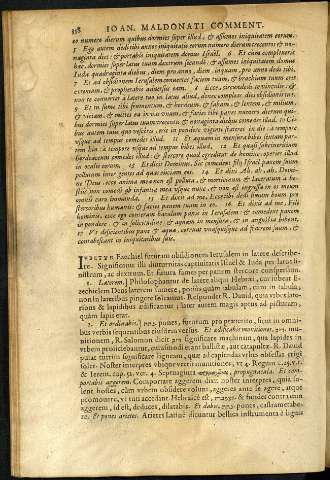 358 IOAN. MALDONATI COMMENT.
eo numero dierum quibus dormies super illud, & assumes iniquitatem eorum.
5 Ego autem dedi tibi annos iniquitatis eorum numero dierum trecentos & nonaginta
dies: & portabis iniquitatem domus Israël. 6 Et cum compleueris
hæc, dormies super latus tuum dexterum secundò, & assumes iniquitatem domus
Iuda quadraginta diebus, diem pro anno, diem, inquam, pro anno dedi tibi.
7 Et ad obsidionem Ierusalem conuertes faciem tuam, & brachium tuum erit
extentum, & prophetabis aduersus eam. 8 Ecce, circumdedi te vinculis, &
non te conuertes à latere tuo in latus aliud, donec compleas dies obsidionis tuæ.
9 Et tu sume tibi frumentum, & hordeum, & fabam, & lentem, & milium,
& viciam, & mittes ea in vas vnum, & facies tibi panes numero dierum quibus
dormies super latus tuum: trecentis & nonaginta diebus comedes illud. 10 Cibus
autem tuus quo vesceris, erit in pondere viginti stateres in die: à tempore
vsque ad tempus comedes illud. 11 Et aquam in mensura bibes sextam partem
hin: à tempore vsque ad tempus bibes illud. 12 Et quasi subcinericium
hordeaceum comedes illud: & stercore quod egreditur de homine operies illud
in oculis eorum. 13 Et dixit Dominus, Sic comedent filij Israël panem suum
pollutum inter gentes ad quas eijciam eos. 14 Et dixi, Ah, ah, ah, Domine
Deus, ecce anima mea non est polluta, & morticinum & laceratum à bestiis
non comedi ab infantia mea vsque nunc, & non est ingressa in os meum
omnis caro immunda. 15 Et dixit ad me, Ecce, dedi tibi fimum boum pro
stercoribus humanis: & facies panem tuum in eo. 16 Et dixit ad me, Fili
hominis, ecce ego conteram baculum panis in Ierusalem: & comedent panem
in pondere, & in sollicitudine, & aquam in mensura, & in angustia bibent.
17 Vt deficientibus pane & aqua, corruat vnusquisque ad fratrem suum, &
contabescant in iniquitatibus suis.
Ezechiel futuram obsidionem Ierusalem in latere describere.
Significatur illis diuturnitas captiuitatis Israël & Iuda per latus sinistrum,
ac dextrum. Et futura fames per panem stercore conspersum.
1. Laterem.) Philosophantur de latere aliqui Hebræi,
Deus laterem sumere, potiùs quàm tabulam,
non in lateribus pingere soleamus. Respondet R. Dauid, quia vrbes lateribus
& lapidibus ædificantur,
quàm lapis erat.
2. Et ordinabis.) pones, futurum pro præterito, sicut in omnibus
verbis sequentibus Et ædificabis munitiones,
munitionem, R. Salomon dicit significare machinam, qua lapides in
vrbem proiiciebantur, R. Dauid
putat turrim significare ligneam, quæ ad capiendas vrbes obsessas erigi
solet. Noster interpres vbique vertit munitiones, vt 4. Regum
& Ierem. cap. 52, ver. 4. Septuaginta propugnacula. Et comportabis
aggerem. Comportare aggerem dixit noster interpres, quia solent
hostes, cùm vrbem obsidere volunt, aggeres
&
aggerem, id est, deduces, dilatabis. Et dabis, pones, castrametaberis.
Et pones arietes. Arietes Latinè dicuntur bellica instrumenta è lignis